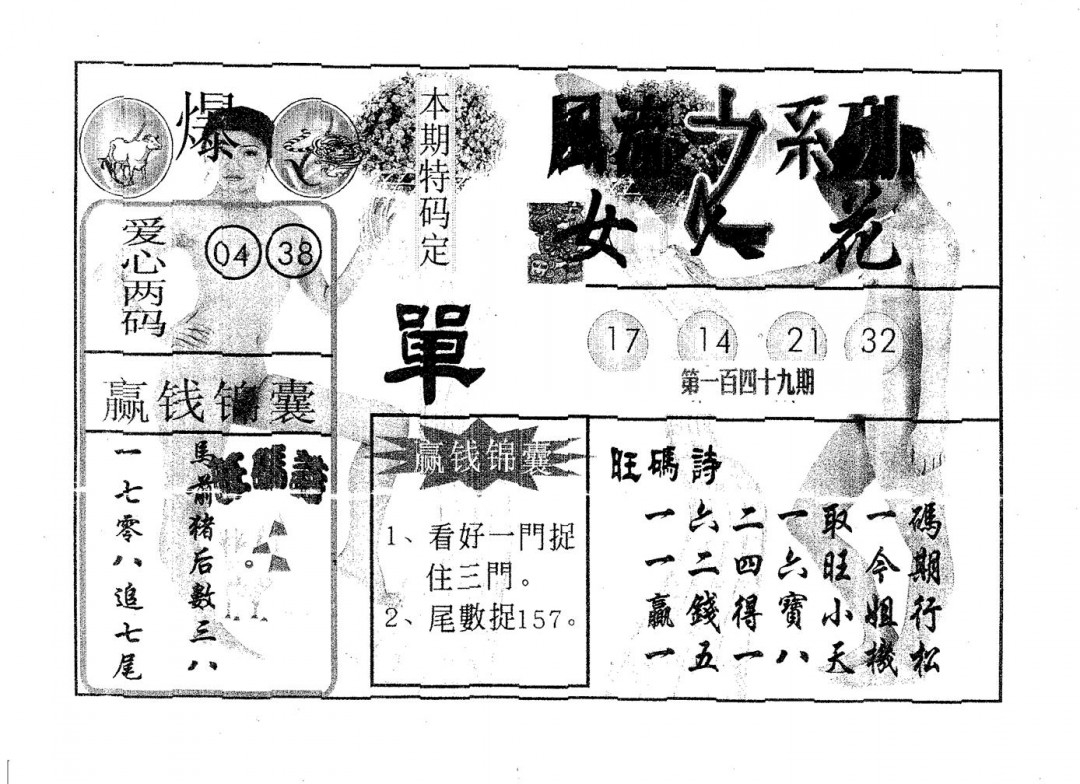 爆
爱心两码
04 38
赢钱锦囊
旺碼詩
馬前猪后數三八
一七零八追七尾
本期特码定
單
赢钱锦囊
1、看好一門捉
住三門。
2、尾數捉157。
系列
女人花
17 14 21 32
第一百四十九期
旺碼詩
一六二一取一碼
一二四六旺今期
贏錢得寶小姐行
一五一八天機松